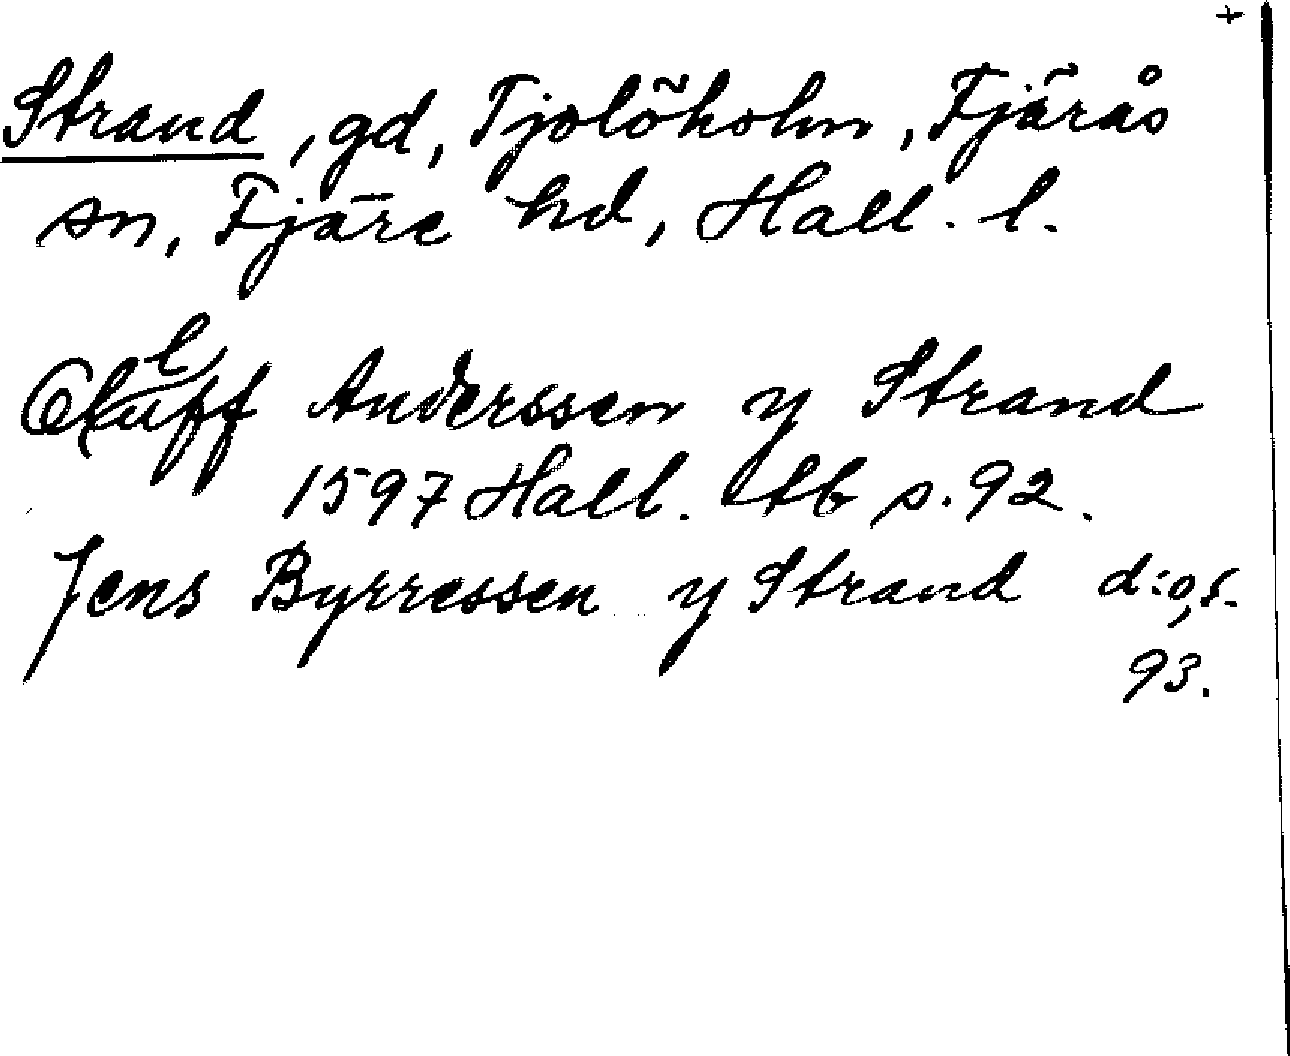 +
Strand, gd, Tjolöholm, Fjärås
sn, Fjäre hd, Hall. l.
Oluff Anderssen y Strand
1597 Hall. Ltb s. 92.
Jens Byrressen y Strand d:o, s.
93.